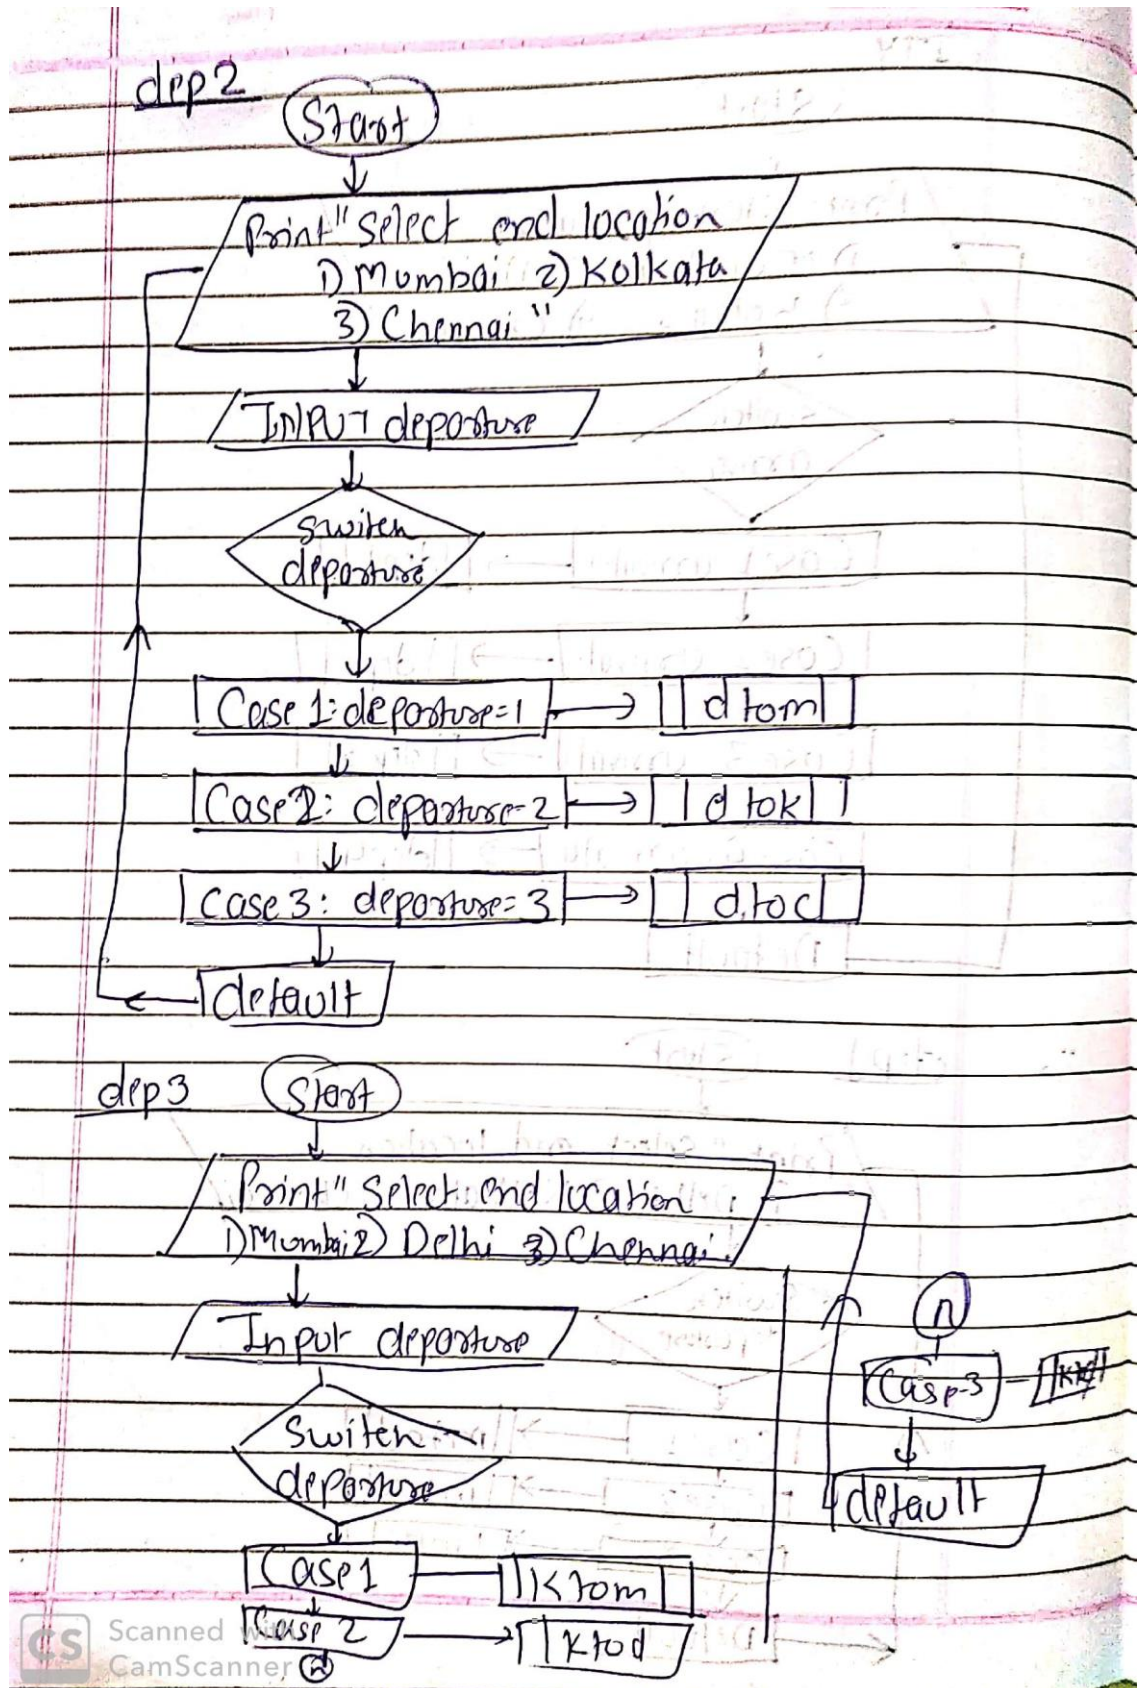 dep2
Start
Print" Select end location
1) Mumbai 2) Kolkata
3) Chennai "
INPUT departure
switch
departure
Case 1: departure=1
dtom
Case 2: departure=2
dtok
Case 3: departure=3
dtoc
default
dep3
Start
Print" Select end location
1) Mumbai 2) Delhi 3) Chennai
Input departure
Switch
departure
Case1
Ktom
Case 2
ktod
n
n
Case-3
default
CS
Scanned with
CamScanner